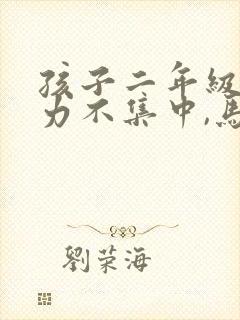 孩子二年級
力不集中,馬
劉荣海